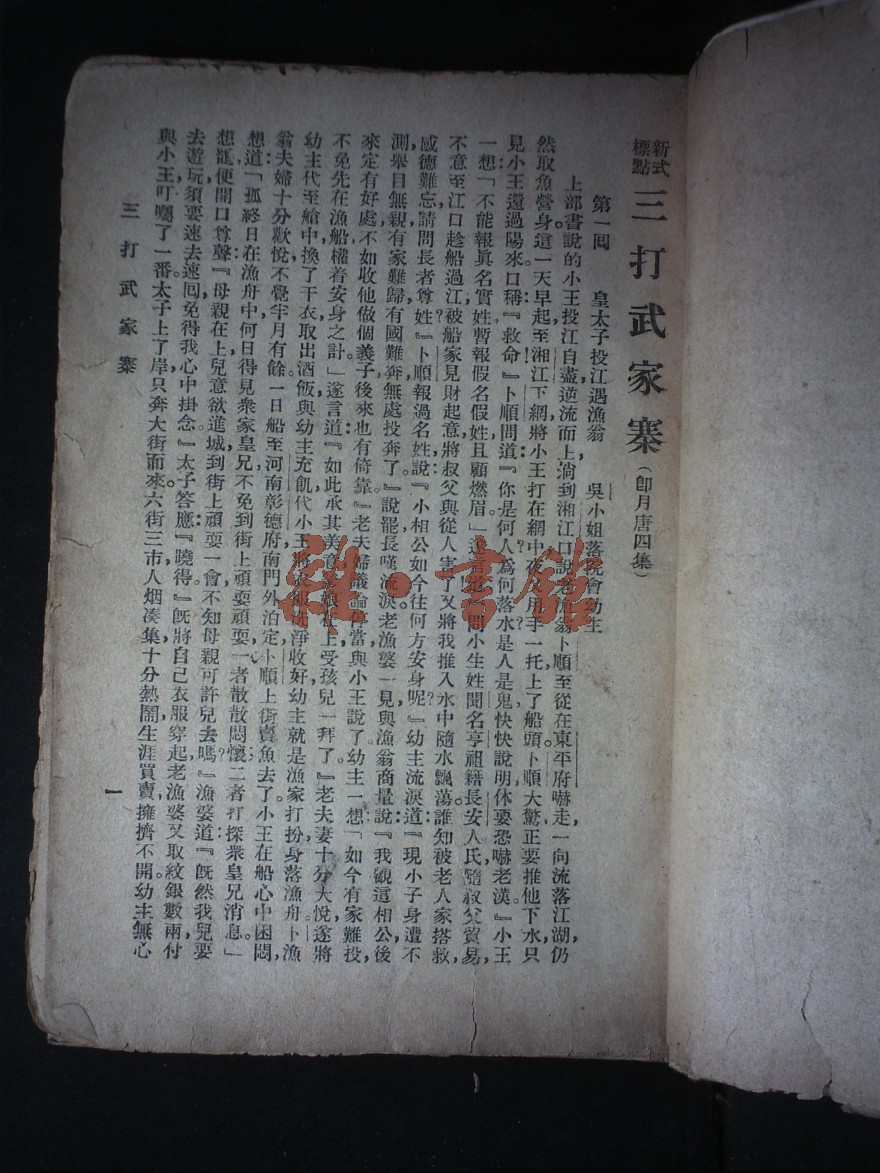 新式標點 三打武家寨(卽月唐四集)
第一囘 皇太子投江遇漁翁 吳小姐落院會幼主
上部書說的小王投江自盡逆流而上，淌到湘江口說老漁翁卜順至從在東平府嚇走一向流落江湖，仍
然取魚營身，這一天早起至湘江下網，將小王打在網中夜公用手一托上了船頭卜順大驚正要推他下水，只
見小王還過陽來，口稱『救命！』卜順問道：『你是何人？為何落水？是人是鬼，快快說明，休要恐嚇老漢。』小王
一想：「不能報眞名實姓，暫報假名假姓，且顧燃眉。」遂言道：問小生姓聞名亨，祖籍長安人民隨叔父貿易，
不意至江口趁船過江，被船家見財起意，將叔父與從人害了，又將我推入水中，隨水飄蕩。誰知被老人家搭救，
感德難忘，請問長者尊姓？』卜順報過名姓，說：『小相公如今往何方安身呢？』幼主流淚道：『現小子身遭不
測，舉目無親，有家難歸，有國難奔，無處投奔了。』說罷長嘆流淚。老漁婆一見，與漁翁商量說：『我觀這相公後
來定有好處，不如收他做個義子，後來也有倚靠。』老夫婦議論停當，與小王說了。幼主一想：「如今有家難投，
不免先在漁船權着安身之計。」遂言道：『如此承其美意，爹娘在上，受孩兒一拜了。』老夫妻十分大悅，遂將
幼主代至艙中，換了干衣，取出酒飯與幼主充飢，代小王將衣服洗淨收好，幼主就是漁家打扮，身落漁舟。卜漁
翁夫婦十分歡悅，不覺半月有餘。一日船至河南彰德府南門外泊定，卜順上街賣魚去了。小王在船心中困悶，
想道：「孤終日在漁舟中，何日得見衆家皇兄？不免到街上頑耍頑耍，一者散散悶懷，二者打探衆皇兄消息。」
想罷，便開口尊聲：『母親在上，兒意欲進城到街上頑耍一會，不知母親可許兒去嗎？』漁婆道：『旣然我兒要
去遊玩，須要速去速囘，免得我心中掛念。』太子答應：『曉得。』旣將自己衣服穿起，老漁婆又取紋銀數兩，付
與小王，叮囑了一番。太子上了岸，只奔大街而來。六街三市，人烟凑集，十分熱鬧，生涯買賣，擁擠不開。幼主無心
三打武家寨
一
雜·書館